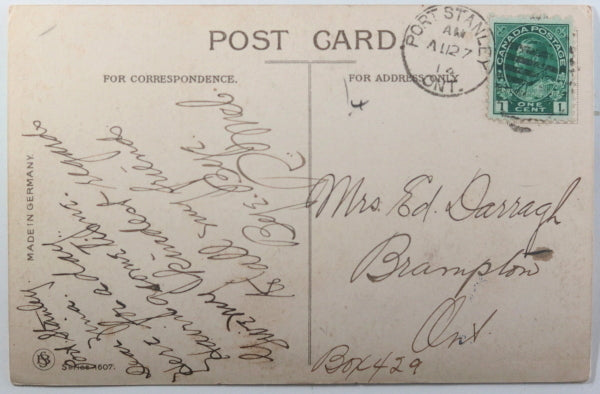 POST CARD
FOR CORRESPONDENCE.
FOR ADDRESS ONLY
PORT STANLEY
AM
AU 27
13
ONT.
CANADA POSTAGE
1 ONE CENT 1
MADE IN GERMANY.
Series 1607.
Port Stanley.
Dear
Here for a day.
Having a time.
Give my kindest regards
to all my friends
Mrs. Ed. Darragh
Brampton
Ont
Box 429